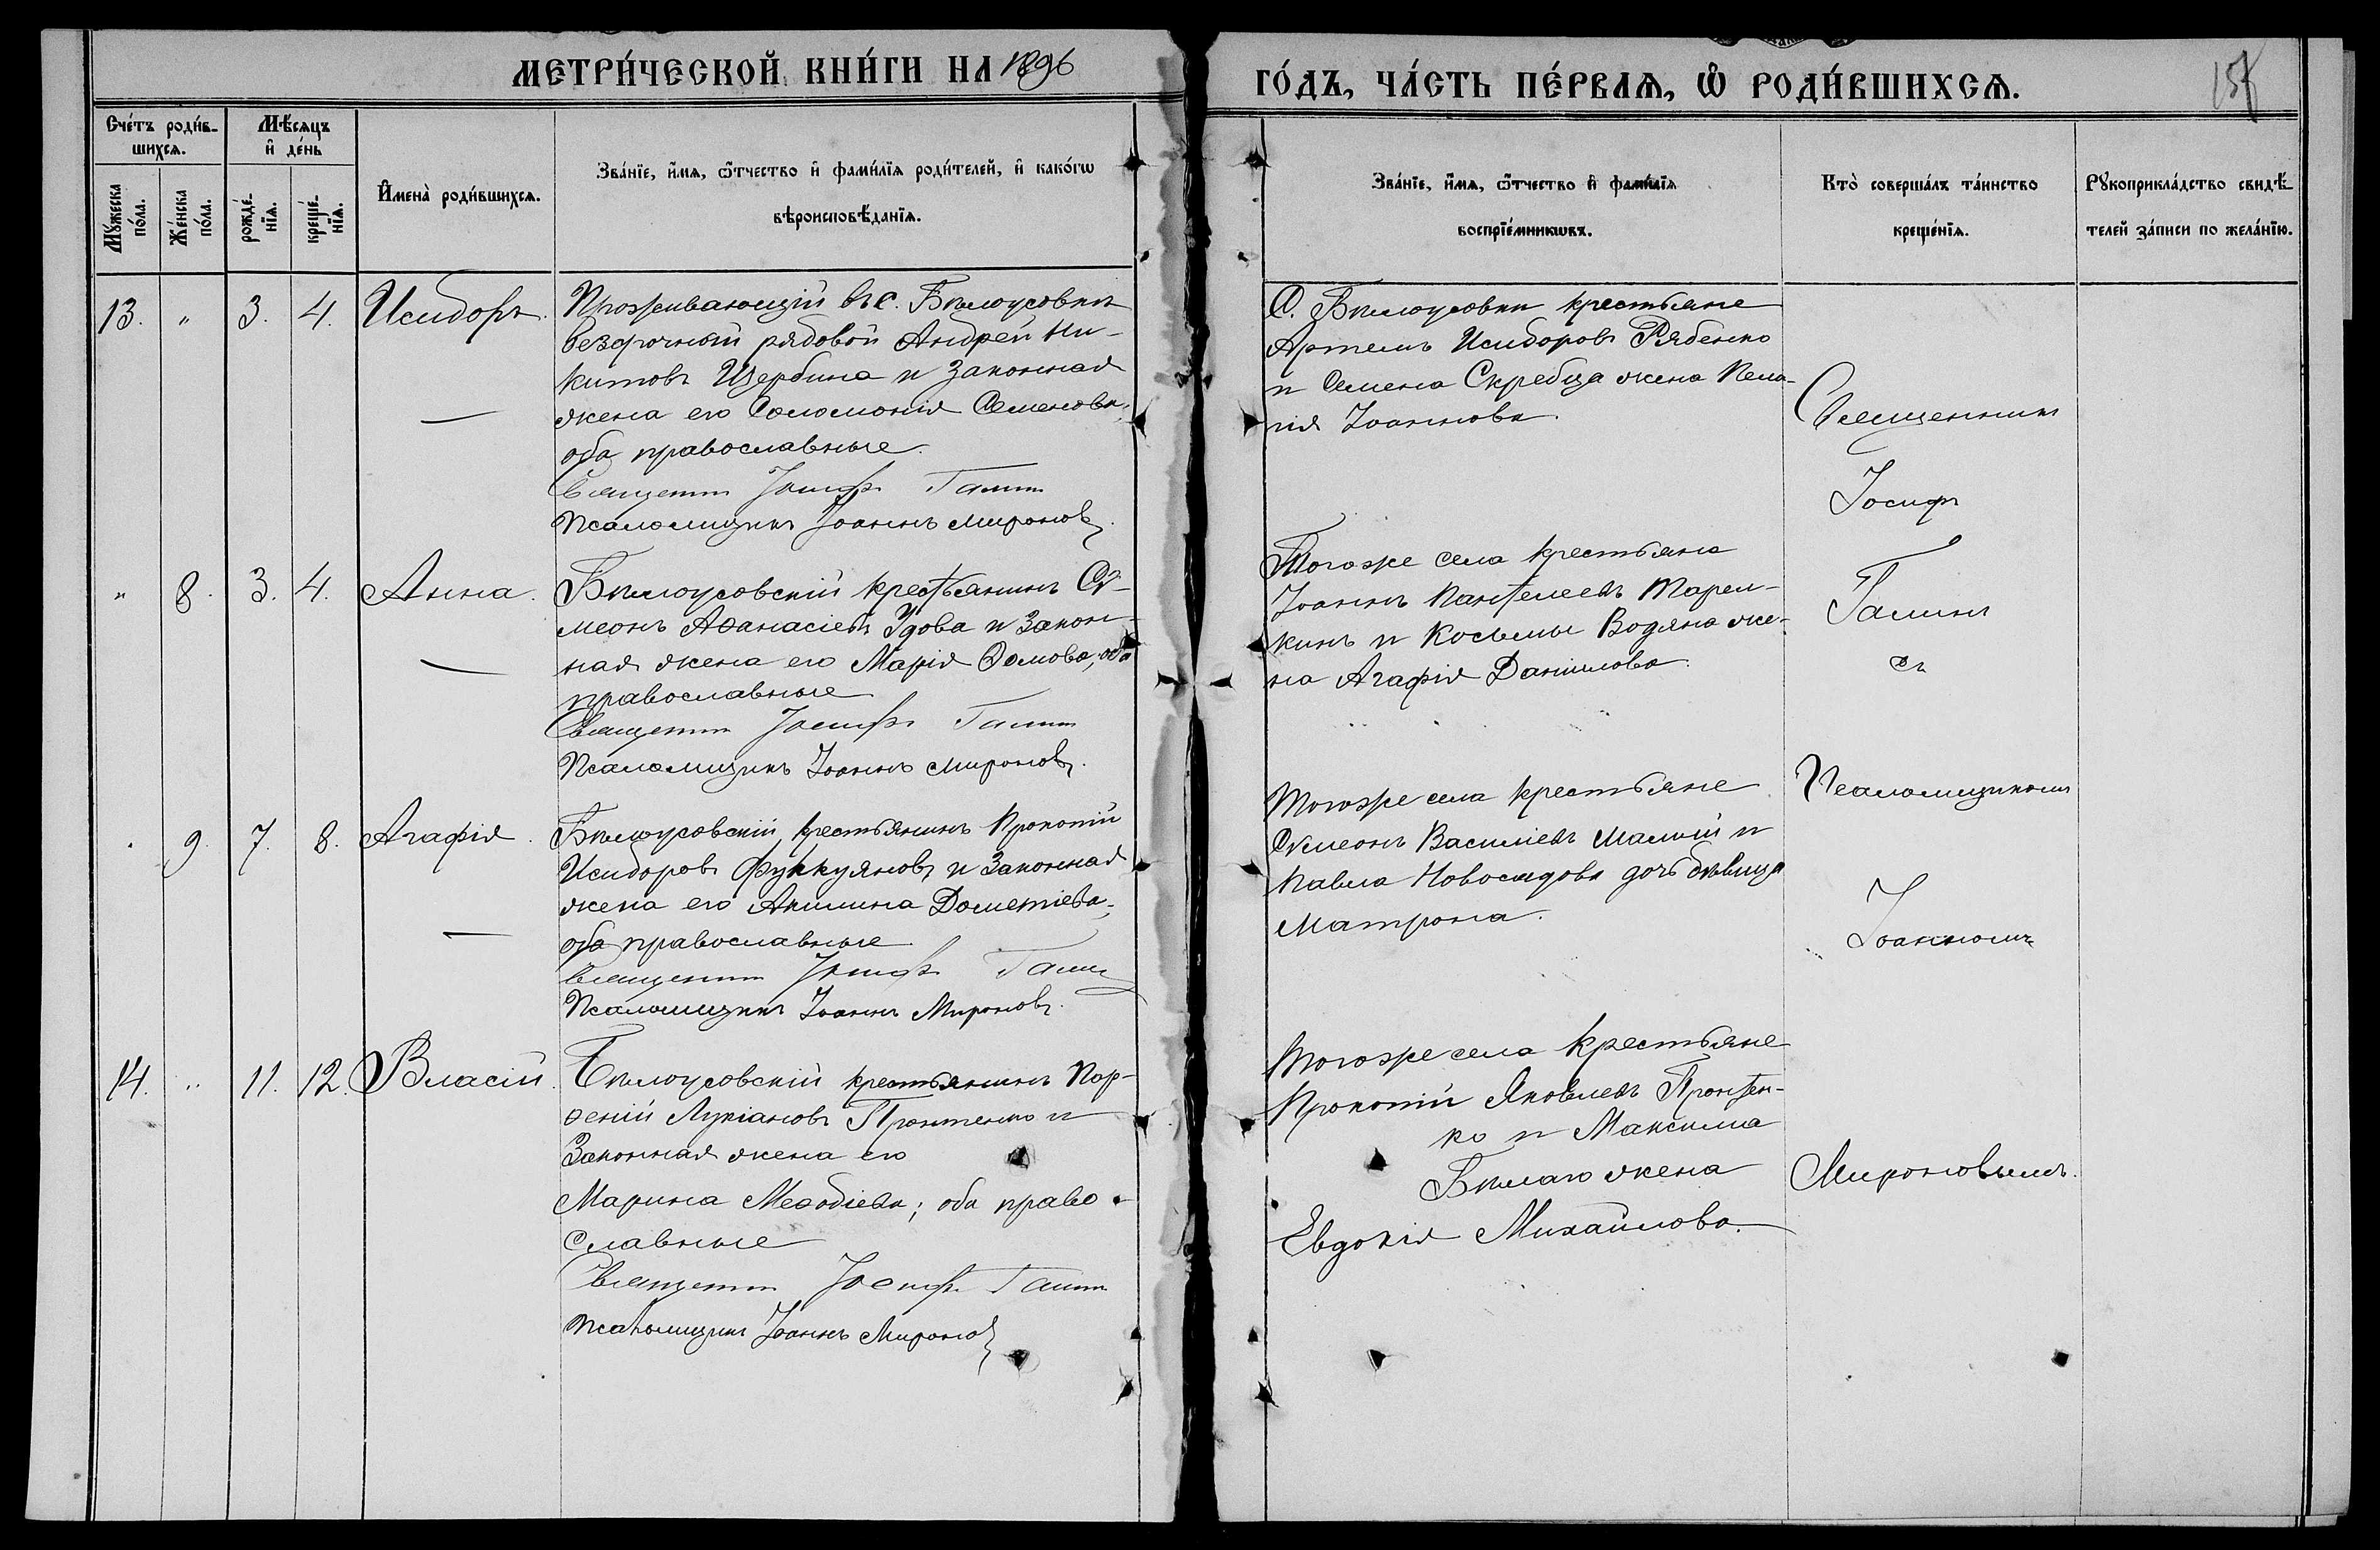 МЕТРИ́ЧЕСКОЙ КНИ́ГИ НА 1896
ГО́ДЪ, ЧА́СТЬ ПЕ́РВАѦ, Ѡ҆ РОДИ́ВШИХСѦ.
Сче́тъ роди́в-
шихсѧ.
Мѣ́сѧцъ
и҆ де́нь
Мꙋ́жеска
по́ла.
Же́нска
по́ла.
рожде́-
нїѧ.
креще́-
нїѧ.
И҆мена̀ роди́вшихсѧ.
Зва́нїе, и҆́мѧ, ѻ҆́тчество и҆ фами́лїѧ роди́телей, и҆ како́гѡ
вѣроисповѣ́данїѧ.
Зва́нїе, и҆́мѧ, ѻ҆́тчество и҆ фами́лїѧ
воспрїе́мникѡвъ.
Кто̀ соверша́лъ та́инство
креще́нїѧ.
Рꙋкоприкла́дство свидѣ́-
телей за́писи по жела́нїю.
13. " 3. 4. Исидоръ.
Проживающій въ с. Бѣлоусовкѣ
безсрочный рядовой Андрей Ни-
китовъ Щербина и законная
жена его Соломонія Семенова,
оба православные.
Священникъ Іосифъ Галинъ
Псаломщикъ Іоаннъ Мироновъ.
С. Бѣлоусовки крестьяне
Артемъ Исидоровъ Рябенко
и Семена Скребца жена Пела-
гія Іоаннова.
" 8. 3. 4. Анна.
Бѣлоусовскій крестьянинъ Си-
меонъ Аѳанасіевъ Удова и закон-
ная жена его Марія Ѳомова, оба
православные
Священникъ Іосифъ Галинъ
Псаломщикъ Іоаннъ Мироновъ.
Тогоже села крестьяне
Іоаннъ Пантелеевъ Марем-
кинъ и Косьмы Водяна же-
на Агафія Даніилова.
9. 7. 8. Агафія.
Бѣлоусовскій крестьянинъ Прокопій
Исидоровъ и законная
жена его Акилина Дометіева,
оба православные
Священникъ Іосифъ Галинъ
Псаломщикъ Іоаннъ Мироновъ.
Тогоже села крестьяне
Симеонъ Василіевъ Малый и
Павла Новосадова дочь дѣвица
Матрона.
14. " 11. 12. Власій.
Бѣлоусовскій крестьянинъ Пар-
ѳеній Лукіановъ Пронтенко и
Законная жена его
Марина Меѳодіева; оба право-
славные
Священникъ Іосифъ Галинъ
Псаломщикъ Іоаннъ Мироновъ
Тогоже села крестьяне
Прокопій Яковлевъ Пронтен-
ко и Максима
Бѣлаго жена
Евдокія Михаилова.
Священникъ
Іосифъ
Галинъ
съ
Псаломщикомъ
Іоанномъ
Мироновымъ.